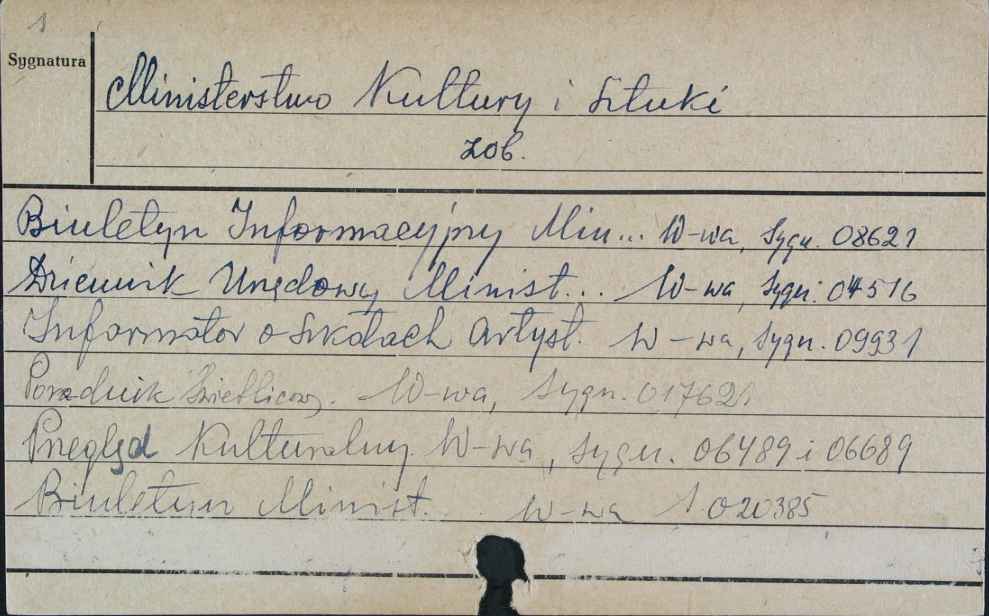 1
Sygnatura
Ministerstwo Kultury i Sztuki
zob.
Biuletyn Informacyjny Min... W-wa, Sygn. 08621
Dziennik Urzędowy Minist... W-wa, Sygn. 04516
Informator o Szkołach Artyst. W-wa, Sygn. 09931
Poradnik Świetlicowy. W-wa, Sygn. 017621
Przegląd Kulturalny W-wa, Sygn. 06489 i 06689
Biuletyn Minist. .. W-wa 020385